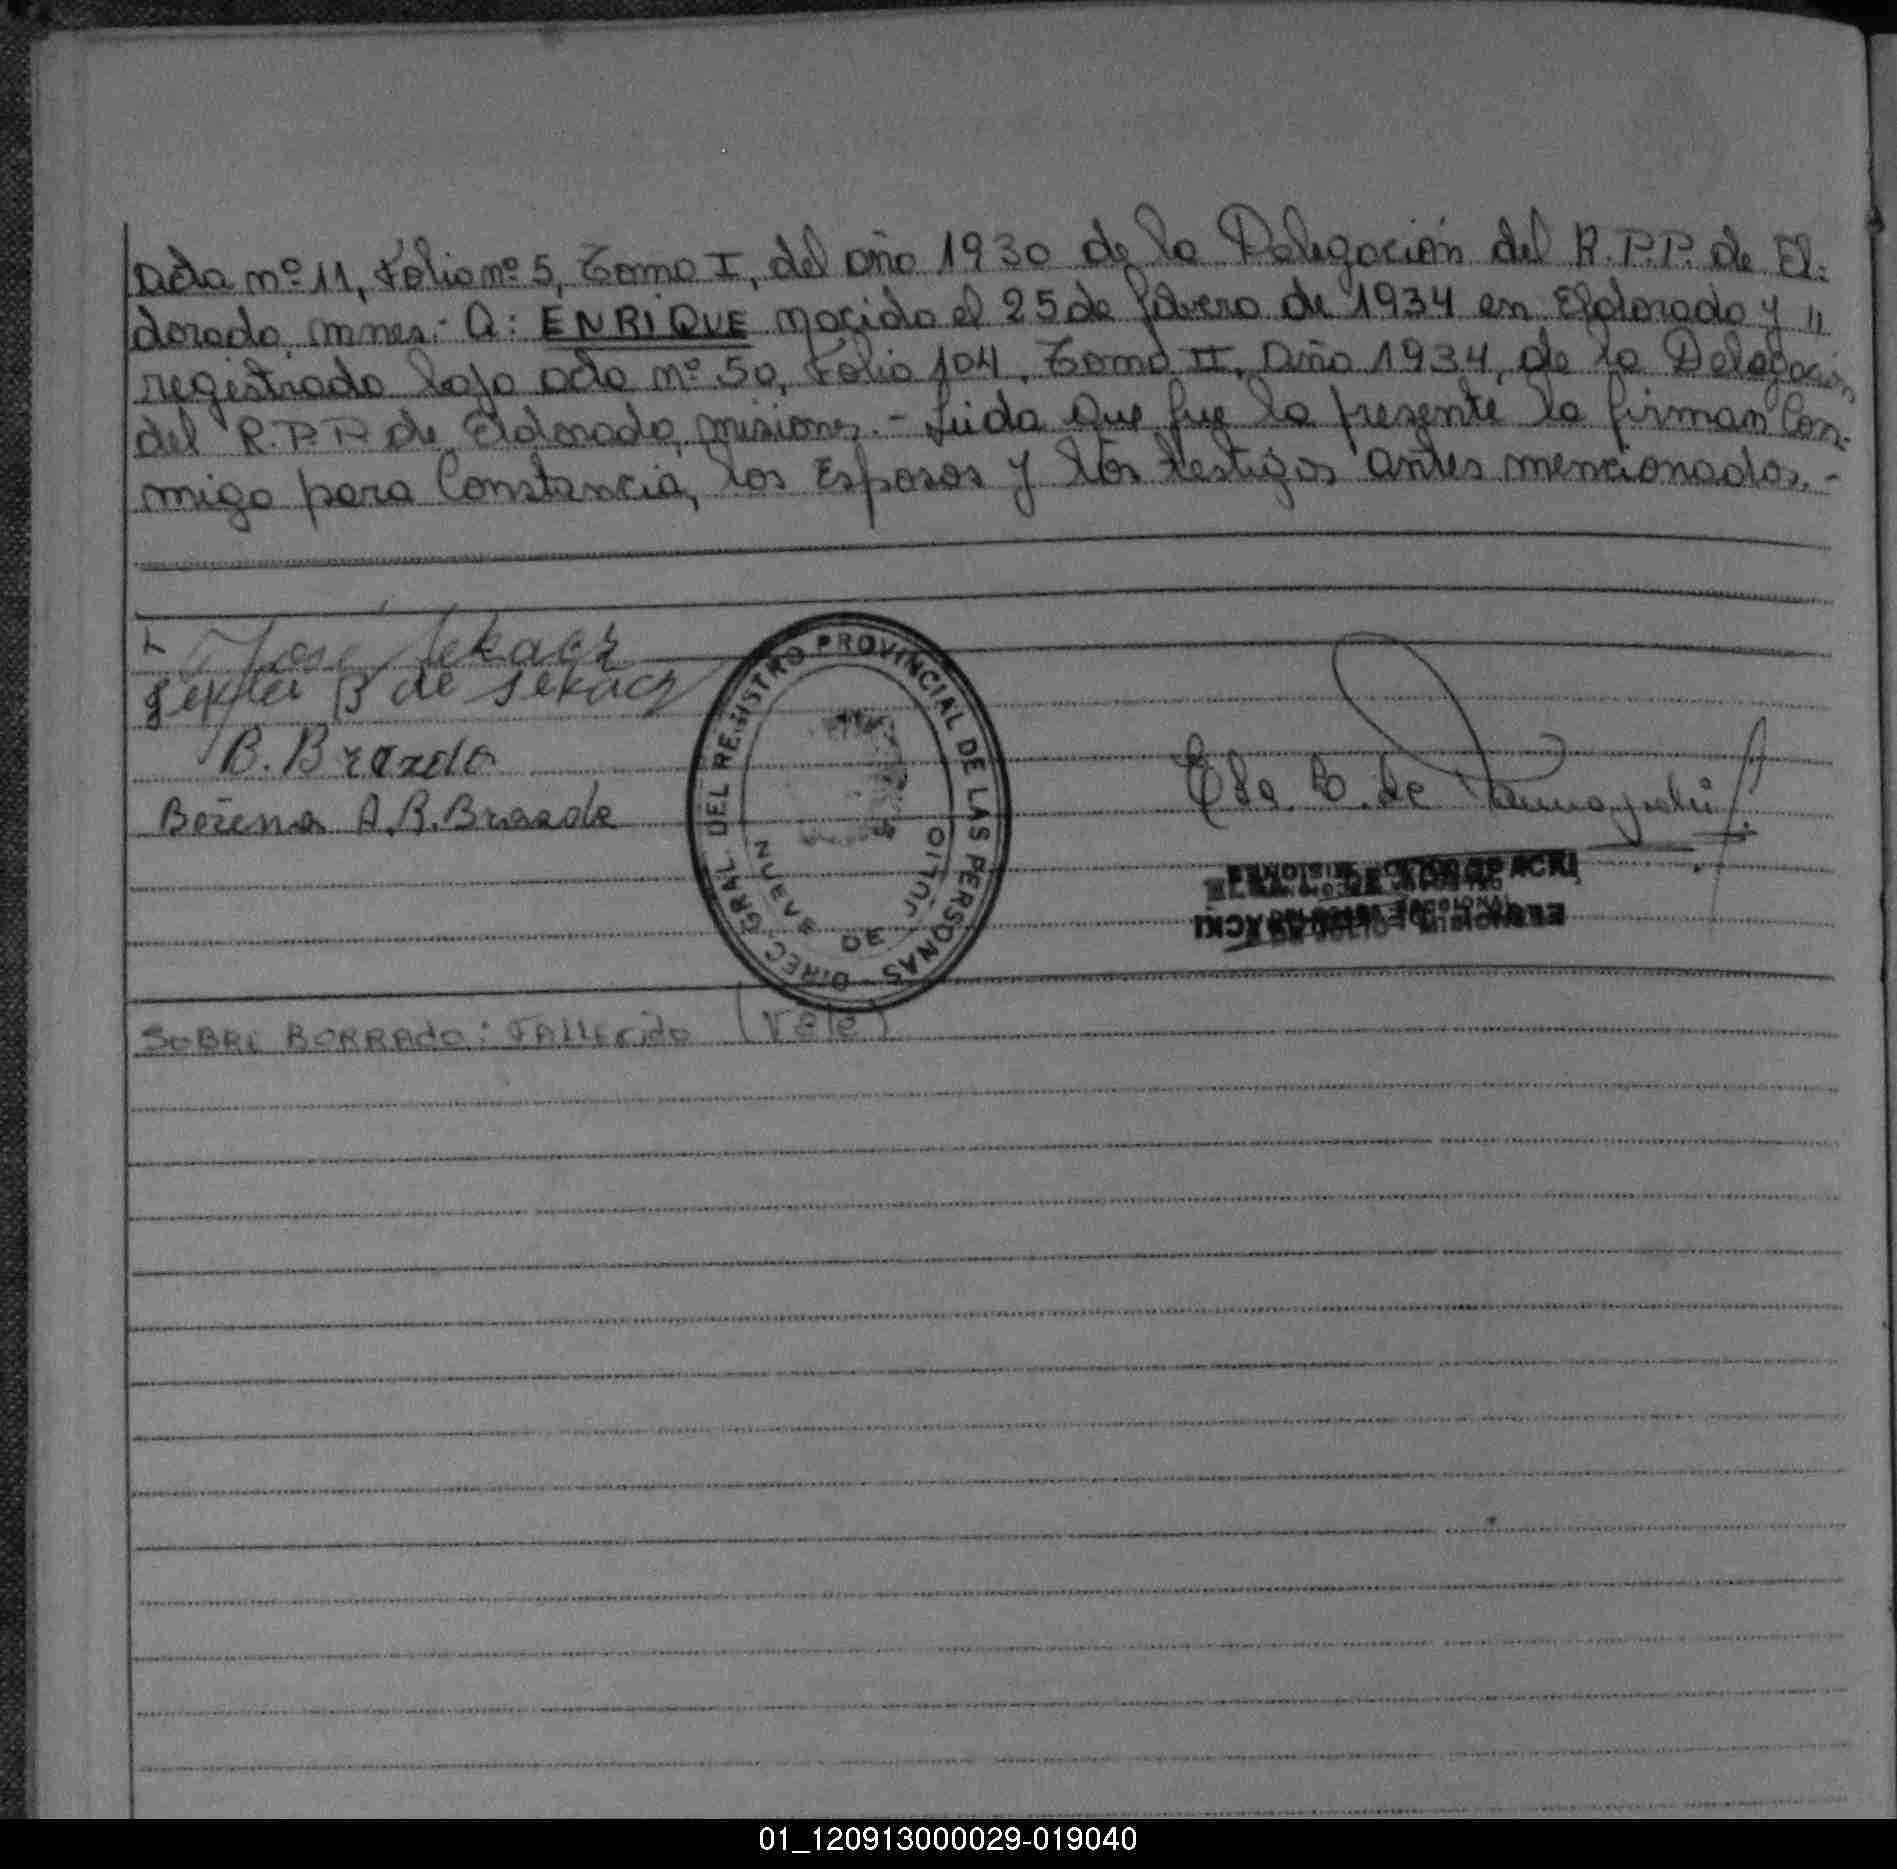 Acta nº 11, Folio nº 5, Tomo I, del año 1930 de la Delegación del R.P.P. de El-
dorado, mnes.- A: ENRIQUE nacido el 25 de febrero de 1934 en Eldorado y "
registrado bajo acta nº 50, Folio 104, Tomo II, Año 1934, de la Delegación
del R.P.P. de Eldorado, misiones.- Leida que fue la presente la firman con-
migo para constancia, los Esposos y los testigos antes mencionados.-
José Sekacz
B de Sekacz
B. Brazda
Božena A.R. Brazda
DIREC. GRAL. DEL REGISTRO PROVINCIAL DE LAS PERSONAS
NUEVE DE JULIO
Elsa B. de
SOBRE BORRADO: FALLECIDO (Vale)
01_120913000029-019040